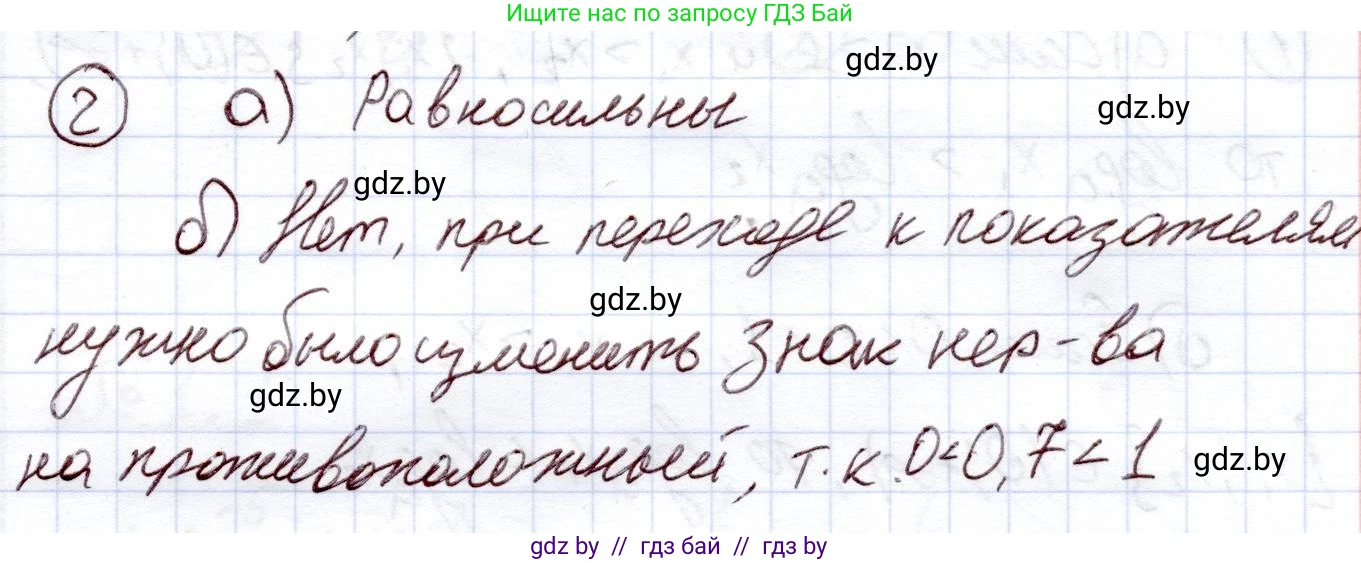 Ищите нас по запросу ГДЗ Бай
gdz.by
② а) Равносильны
gdz.by
gdz.by
б) Нет, при переходе к показателям
gdz.by
нужно было изменить знак нер-ва
gdz.by
на противоположный, т.к. 0<0,7<1
gdz.by
gdz by // гдз бай // гдз by